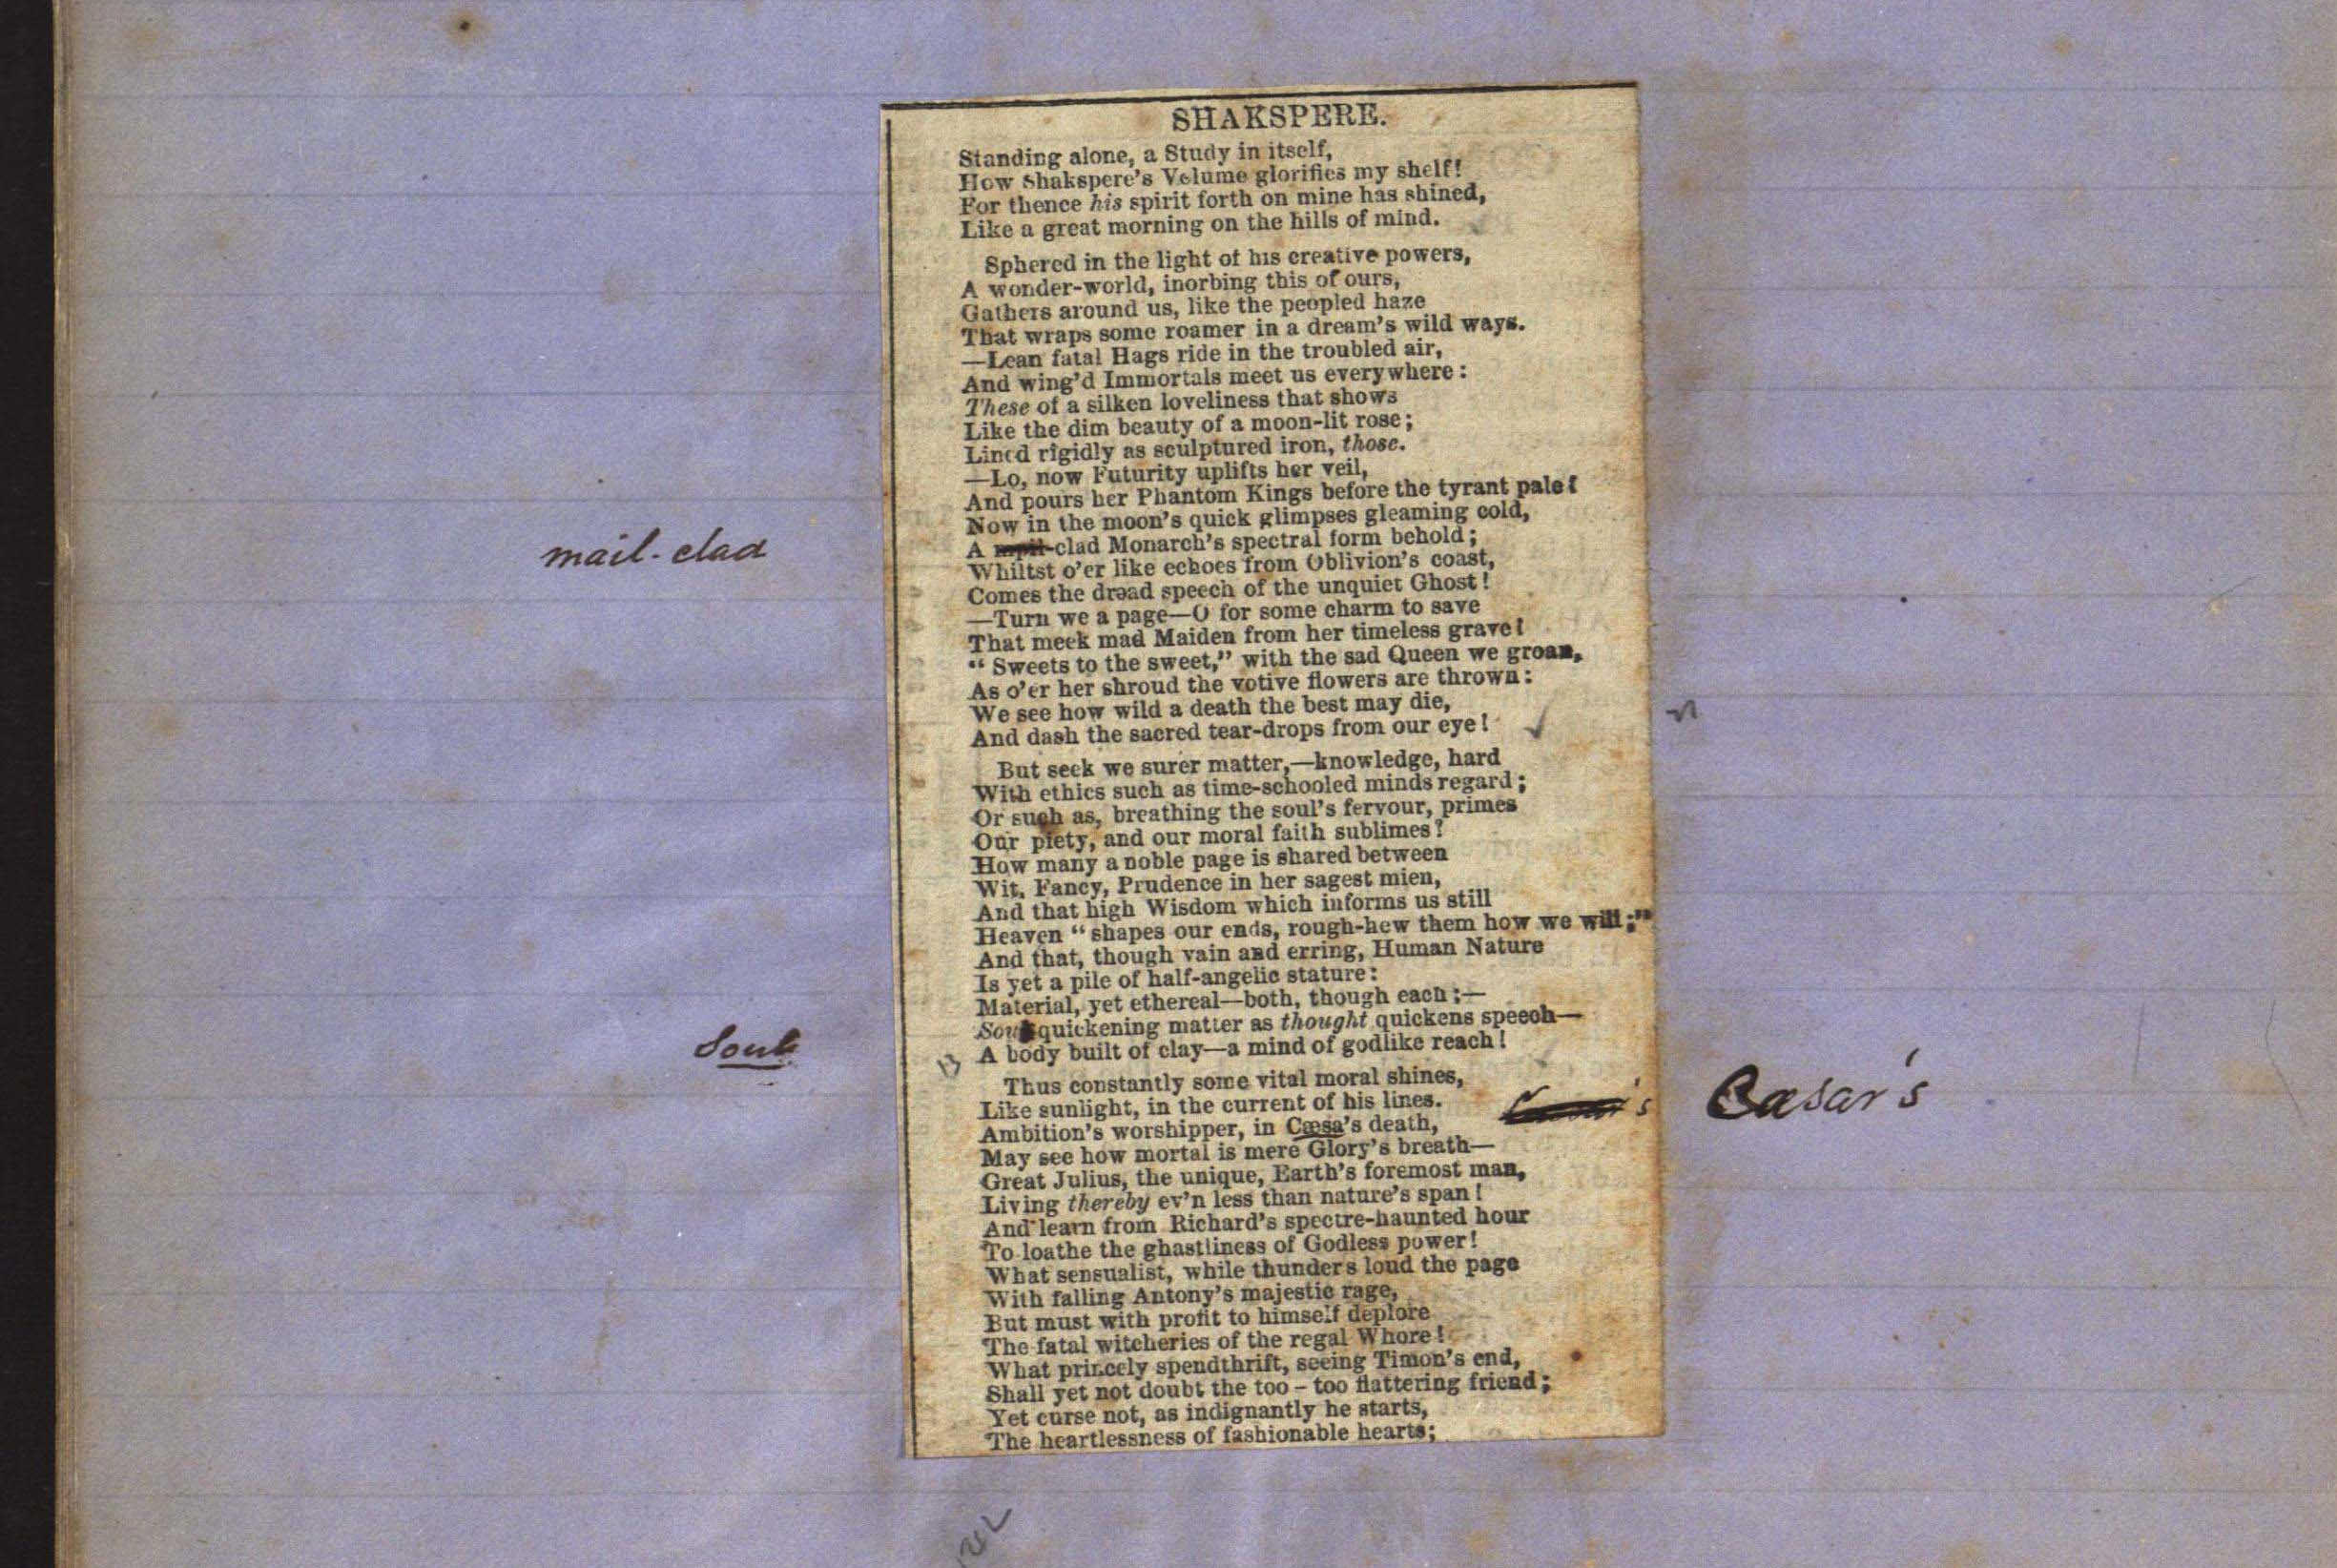 SHAKSPERE.
Standing alone, a Study in itself,
How Shakspere's Volume glorifies my shelf!
For thence his spirit forth on mine has shined,
Like a great morning on the hills of mind.
Sphered in the light of his creative powers,
A wonder-world, inorbing this of ours,
Gathers around us, like the peopled haze
That wraps some roamer in a dream's wild ways.
—Lean fatal Hags ride in the troubled air,
And wing'd Immortals meet us everywhere:
These of a silken loveliness that shows
Like the dim beauty of a moon-lit rose;
Lined rigidly as sculptured iron, those.
—Lo, now Futurity uplifts her veil,
And pours her Phantom Kings before the tyrant pale!
Now in the moon's quick glimpses gleaming cold,
mail-clad
A -clad Monarch's spectral form behold;
Whiltst o'er like echoes from Oblivion's coast,
Comes the dread speech of the unquiet Ghost!
—Turn we a page—O for some charm to save
That meek mad Maiden from her timeless grave!
"Sweets to the sweet," with the sad Queen we groan,
As o'er her shroud the votive flowers are thrown:
We see how wild a death the best may die,
And dash the sacred tear-drops from our eye!
But seek we surer matter,—knowledge, hard
With ethics such as time-schooled minds regard;
Or such as, breathing the soul's fervour, primes
Our piety, and our moral faith sublimes?
How many a noble page is shared between
Wit, Fancy, Prudence in her sagest mien,
And that high Wisdom which informs us still
Heaven "shapes our ends, rough-hew them how we will;"
And that, though vain and erring, Human Nature
Is yet a pile of half-angelic stature:
Material, yet ethereal—both, though each;—
Soul
Soul quickening matter as thought quickens speech—
13 A body built of clay—a mind of godlike reach!
Thus constantly some vital moral shines,
Like sunlight, in the current of his lines.
Ambition's worshipper, in Cæsa's death,
's Cæsar's
May see how mortal is mere Glory's breath—
Great Julius, the unique, Earth's foremost man,
Living thereby ev'n less than nature's span!
And learn from Richard's spectre-haunted hour
To loathe the ghastliness of Godless power!
What sensualist, while thunders loud the page
With falling Antony's majestic rage,
But must with profit to himself deplore
The fatal witcheries of the regal Whore!
What princely spendthrift, seeing Timon's end,
Shall yet not doubt the too-too flattering friend;
Yet curse not, as indignantly he starts,
The heartlessness of fashionable hearts;